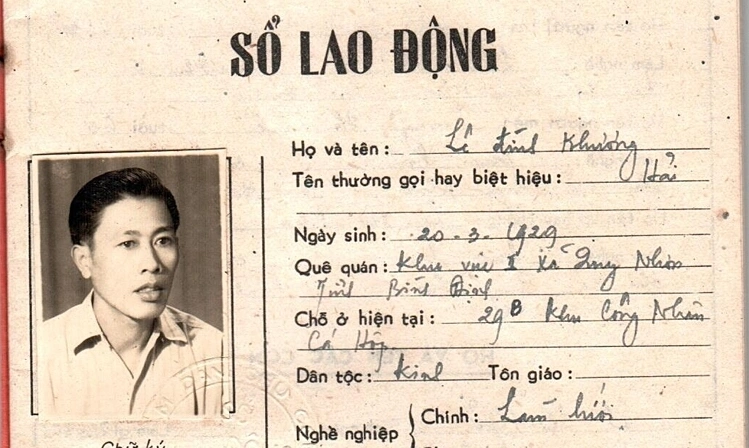 SỔ LAO ĐỘNG
Họ và tên: Lê đình Khương
Tên thường gọi hay biệt hiệu: Hải
Ngày sinh: 20-3-1929
Quê quán: Khu vực I Xã Quy Nhơn
Tỉnh Bình Định
Chỗ ở hiện tại: 29B Khu Công Nhân
Cá Hộp
Dân tộc: Kinh Tôn giáo:
Nghề nghiệp Chính: Làm lưới
Chữ ký